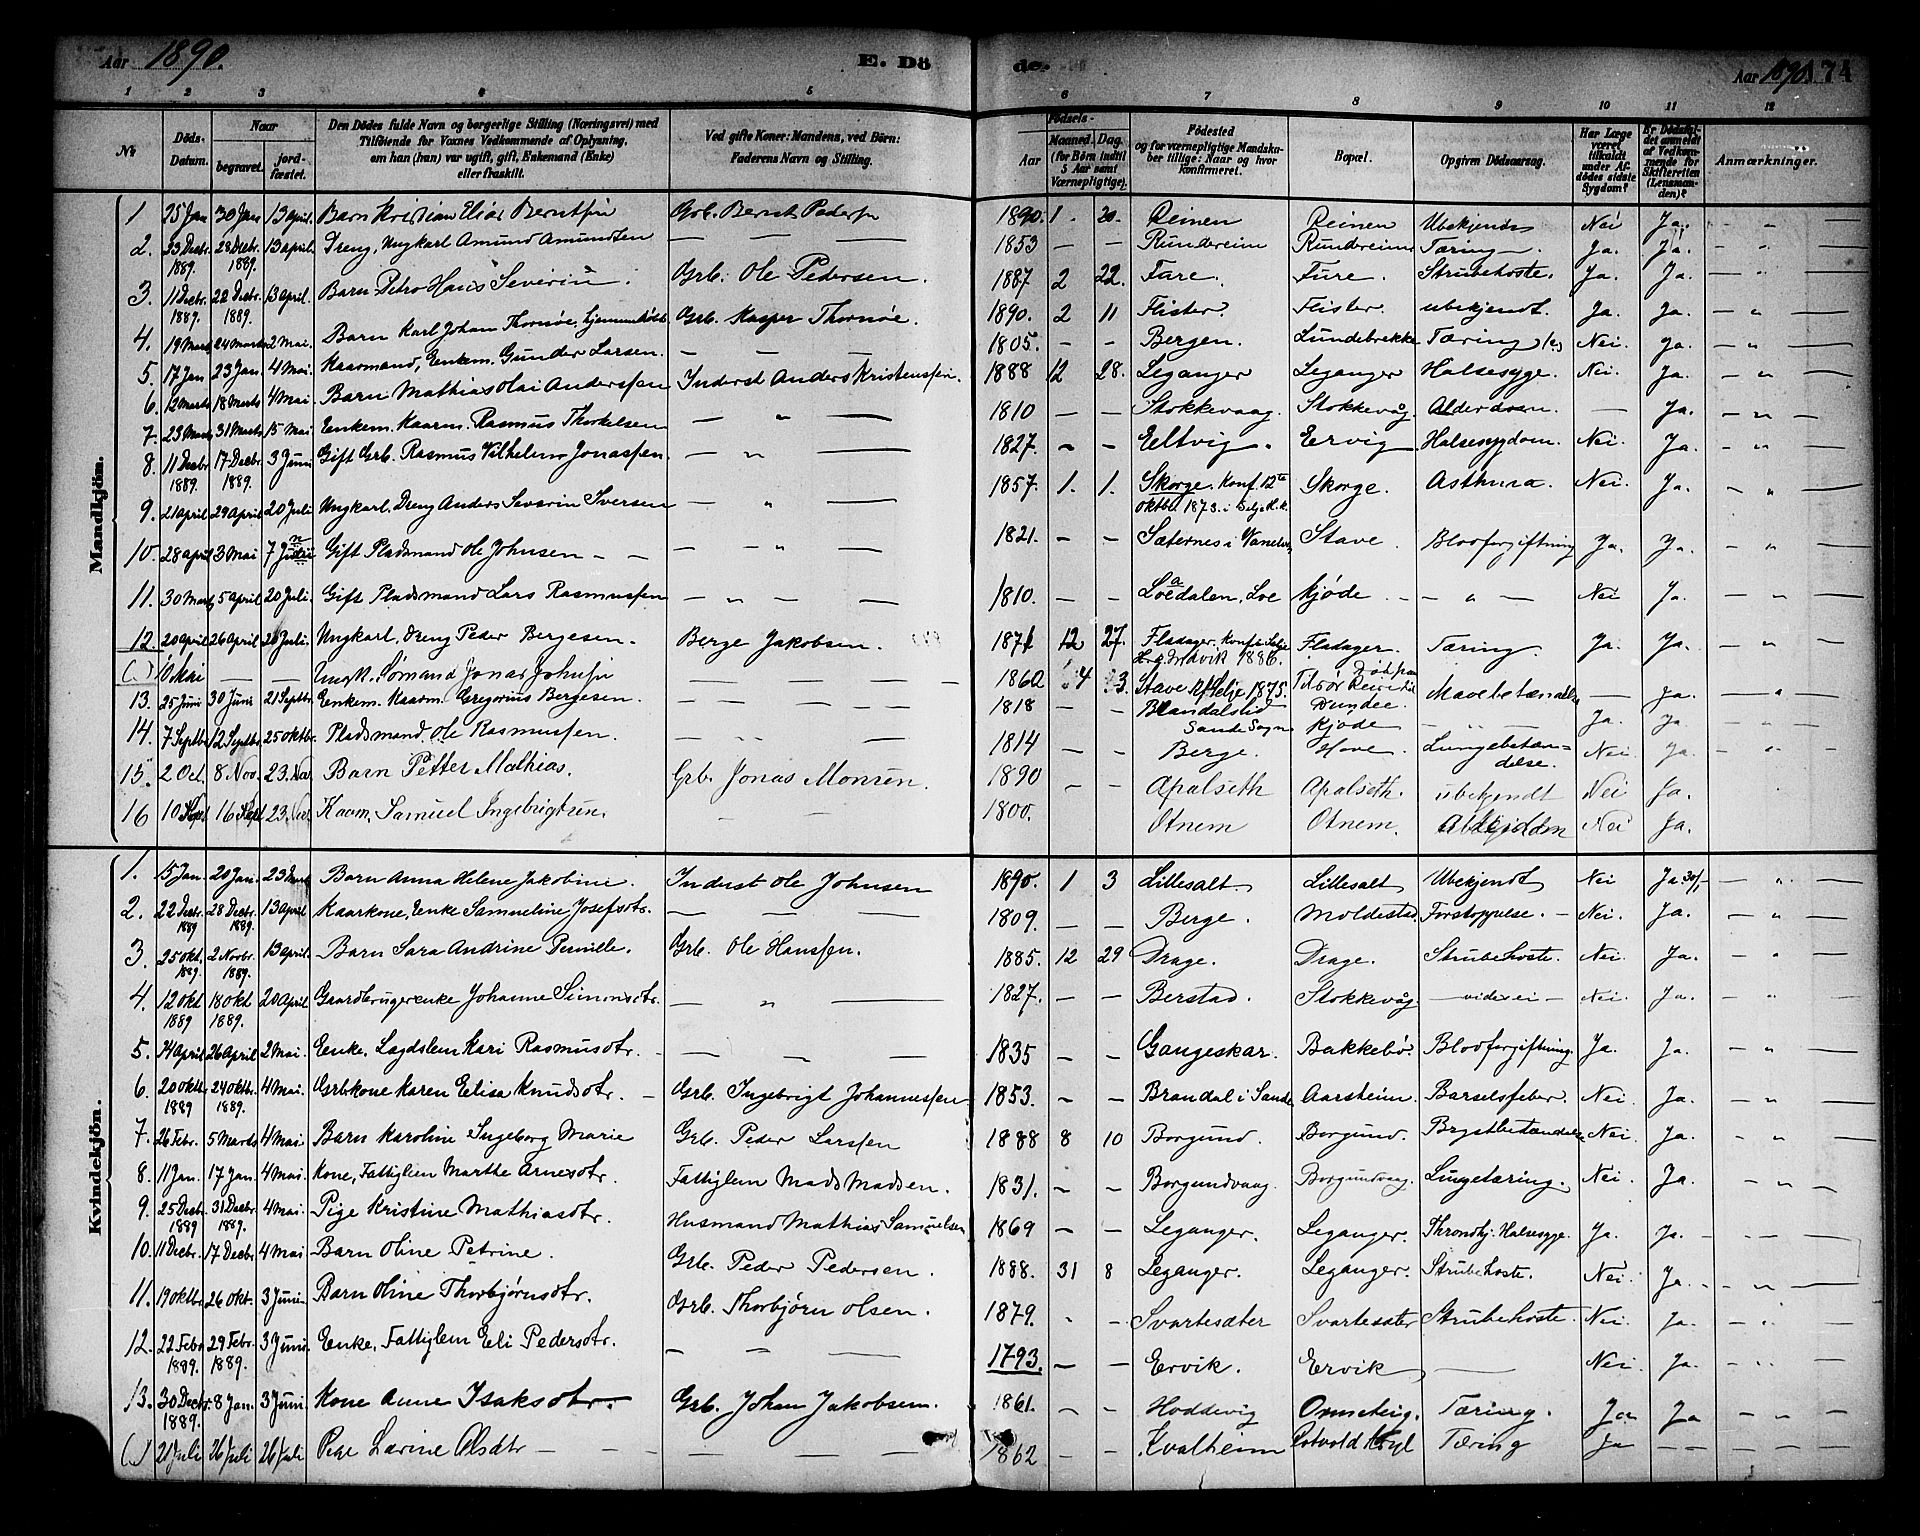 Aar 1890. E. Dö
de. Aar 1890. 174
1 2 3 4 5 6 7 8 9 10 11 12
No
Döds-Datum.
Naar
begravet.
jord-fæstet.
Den Dödes fulde Navn og borgerlige Stilling (Næringsvei) med
Tilföiende for Voxnes Vedkommende af Oplysning,
om han (hun) var ugift, gift, Enkemand (Enke)
eller fraskilt.
Ved gifte Koner: Mandens, ved Börn:
Faderens Navn og Stilling.
Födsels-
Aar
Maaned. Dag.
(for Börn indtil
5 Aar samt
Værnepligtige).
Födested
og for værnepligtige Mandska-
ber tillige: Naar og hvor
konfirmeret.
Bopæl.
Opgiven Dödsaarsag.
Har Læge
været
tilkaldt
under Af-
dödes sidste
Sygdom?
Er Dödsfal-
det anmeldt
af Vedkom-
mende for
Skifteretten
(Lensman-
den)?
Anmærkninger.
Mandkjön.
1 25 Jan 30 Jan 13 april Barn Kristian Elias Berntsen Grb. Bernt Pedersen 1890. 1. 20. Reinen Reinen Ubekjendt Nei Ja.
2. 23 Decbr. 1889. 28 Decbr. 1889. 13 april. Dreng, Ungkarl Amund Amundsen — — — 1853 — — Rundereim Rundereim Tæring. Ja. Ja.
3. 11 Decbr. 1889 22 Decbr. 1889. 13 april. Barn Petro Hans Severin. Grb. Ole Pedersen 1887 2 22. Fure. Fure. Strubehoste. Ja. Ja.
4. 19 Marts 24 Marts 2 Mai. Barn Karl Johan Thornøe, hjemmedøbt Grb. Kasper Thornøe. 1890. 2 11 Flister Flister. ubekjendt. Ja. Ja.
5. 17 Jan 23 Jan. 4 Mai. Kaarmand, Enkem. Gunder Larsen. — — — 1805. — — Bergen. Lundebrekke Tæring Nei. Ja.
6. 12 Marts 18 Marts 4 Mai. Barn Mathias Olai Anderssen Inderst Anders Kristenssen. 1888 12 28. Leganger Leganger Halsesyge. Nei. Ja.
7. 23 Marts 31 Marts 15 Mai Enkem. Kaarm. Rasmus Thorkelsen — " — 1810 — — Stokkevaag. Stokkevåg. Alderdom. — Ja.
8. 11 Decbr. 1889. 17 Decbr. 1889. 3 Juni Gift Grb. Rasmus Vilhelm Jonassen. — " — 1827. — — Eltvig. Ervig Halsesygdom. Nei. Ja.
9. 21 april 29 April 20 Juli Ungkarl. Dreng Anders Severin Iversen — " — 1857. 1. 1. Skorge. Konf. 12te oktbr. 1873. i Selje H.k. Skorge. Asthma. Nei. Ja.
10. 28 april 3 Mai 7 Juni Gift Pladsmand Ole Johnsen — — — " — 1821. — — Sæternes i Vanelven Stave. Blodforgiftning Ja. Ja.
11. 30 Marts 5 April 20 Juli. Gift Pladsmand Lars Rasmussen — " — — 1810. — — Loedalen, Loe Kjøde. — " — Nei Ja.
12. 20 april 26 April 20 Juli. Ungkarl. Dreng Peder Bergesen. Berge Jakobsen. 1871 12 27. Fladager. Konf. i Selje 1886. Fladager. Tæring. Ja. Ja.
(.) 10 Mai — — Ungk. Sømand Jonas Johnsen — — — 1860 4 3. Stave Kf. Selje 1875. Død paa Reise til Dundee.
13. 25 Juni 30 Juni 21 Septbr. Enkem. Kaarm. Gregorius Bergesen. — — — 1818 — — Brandalslid Sande Sogn Kjøde Mavebetændelse — Ja.
14. 7 Septbr 12 Septbr. 25 oktbr. Pladsmand Ole Rasmussen. — " " — 1814 — — Berge. Hove. Lungebetændelse. Nei. Ja.
15. 2 Oct. 8 Nov. 23. Nov. Barn Petter Mathias. Grb. Jonas Monsen 1890 — — Apalseth Apalseth. ubekjendt Nei Ja.
16 10 Sept 16 Sept 23. Nov. Kaarm. Samuel Ingebrigtsen. — — 1800. Otnem Otnem. Alderdom Nei Ja.
Kvindekjön.
1. 15 Jan. 20 Jan. 23 Marts Barn Anna Helene Jakobine. Inderst Ole Johnsen 1890. 1 3 Lillesalt Lillesalt Ubekjendt Nei Ja. 30/1
2. 22 Decbr. 1889 28 Decbr. 1889. 13 april Kaarkone, Enke Samueline Josefsdtr. — — — 1809. — — Berge. Moldestad. Forstoppelse. — Nei. Ja.
3. 25 okt. 1889. 2 Novbr. 1889. 13 april. Barn Sara Andrine Pernille. Grb. Ole Hanssen. 1885. 12 29 Drage. Drage. Strubehoste. Nei. Ja.
4. 12 Okt 1889 18 okt 1889. 20 April Gaardbrugerenke Johanne Simonsdtr. — " — 1827. — — Berstad. Stokkevåg. — vides ei — Nei. Ja.
5. 14 April 26 April 2 Mai. Enke, Lægdslem Kari Rasmusdtr. — — — 1835 — — Gangeskar. Bakkebø. Blodforgiftning. Ja. Ja.
6. 20 oktbr 1889 24 oktbr. 1889. 4 Mai. Grbkone Karen Elisa Knudsdtr. Grb. Ingebrigt Johannessen 1853. — — Brandal i Sande Aarsheim. Barselsfeber. Nei. Ja.
7. 26 Febr. 5 Marts 4 Mai. Barn Karoline Ingeborg Marie Grb. Peder Larssen 1888 8 10 Borgund. Borgund. Brystbetændelse Nei. Ja.
8. 11 Jan. 17 Jan 4 Mai Kone, Fattiglem Marthe Arnesdtr. Fattiglem Mads Madsen. 1831. — — Borgundvaag Borgundvaag. Lungetæring. Nei. Ja.
9. 25 Decbr. 1889 31 Decbr 1889. 4 Mai. Pige Kristine Mathiasdtr. Husmand Mathias Samuelsen 1869 — — Leganger. Leganger. Throndhj. Halsesyge. Ja. Ja.
10. 11 Decbr. 17 Decbr 4 Mai Barn Oline Petrine. Grb. Peder Pedersen. 1888. 31 8 Leganger. Leganger. Strubehoste. Nei. Ja.
11. 19 oktbr 26 okt. 3 Juni Barn Oline Thorbjørnsdtr. Grb. Thorbjørn Olsen. 1879. - - Svartesæter Svartesæter Strubehoste. Nei. Ja.
12. 22 Febr 1889. 29 Febr. 1889. 3 Juni. Enke, Fattiglem Eli Pedersdtr. — — — 1793. — — Ervik. Ervik — Nei. Ja.
13. 30 Decbr. 1889. 8 Jan. 3 Juni Kone Anne Isaksdtr. Grb. Johan Jakobsen. 1861. — — Hoddevig Tæring. Ja Ja
(.) 21 Juli 26 Juli 26 Juli Pige Lavine Olsdtr — — — 1862 — — Kvalheim Tæring Ja — —